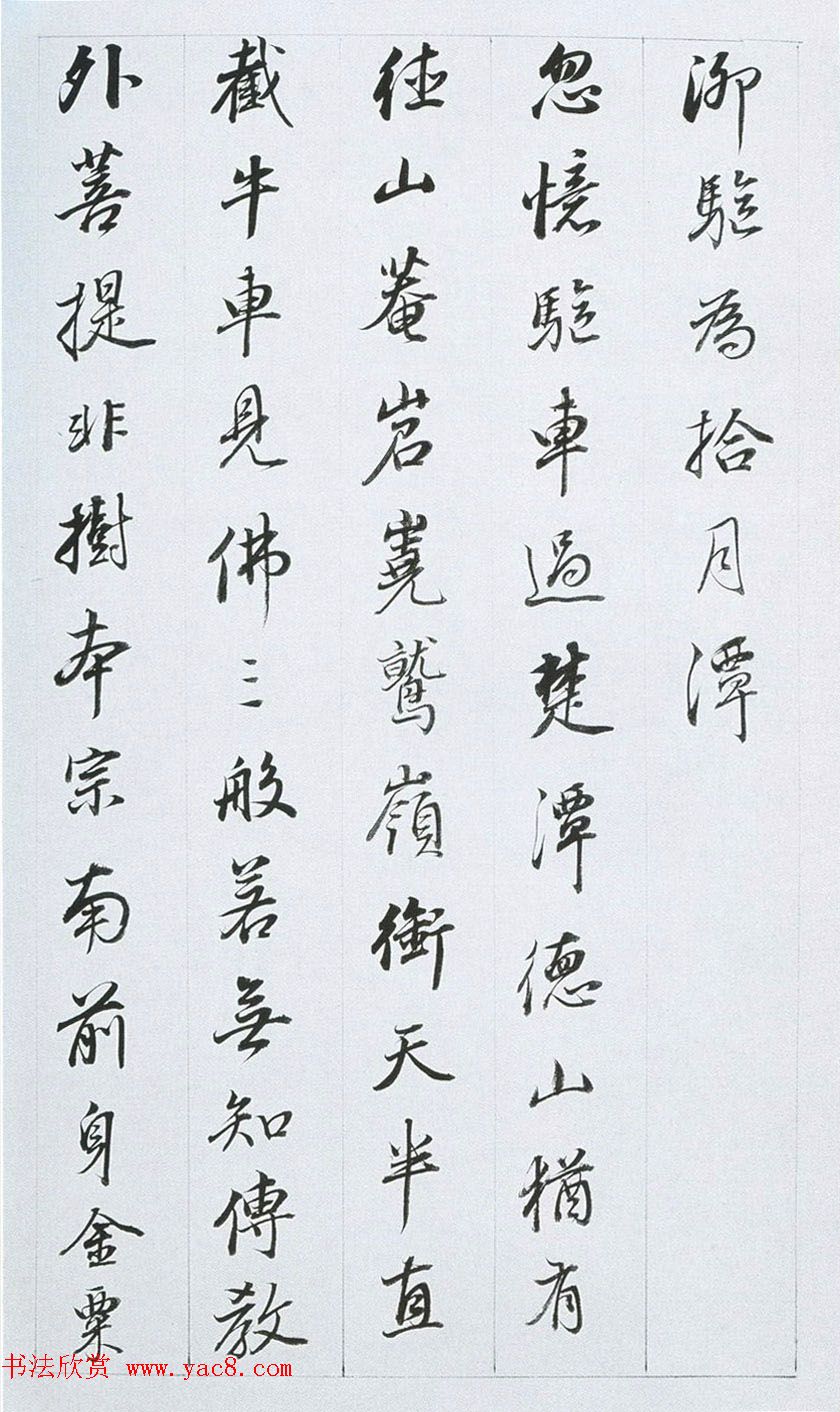 泖駞為拾月潭
忽憶駞車過楚潭德山猶有
往山菴岧嶤鷲嶺銜天半直
截牛車見佛三般若無知傳教
外菩提非樹本宗南前身金粟
书法欣赏 www.yac8.com